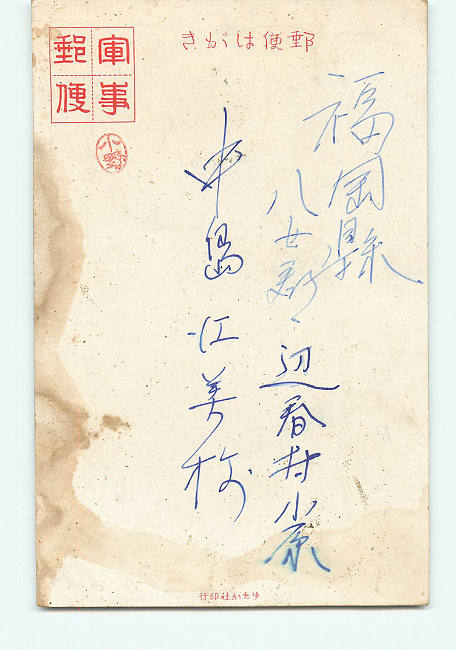 郵便はがき
軍事
郵便
福岡縣
八女郡、辺春村小原
中島江美様
ゆたか社印行